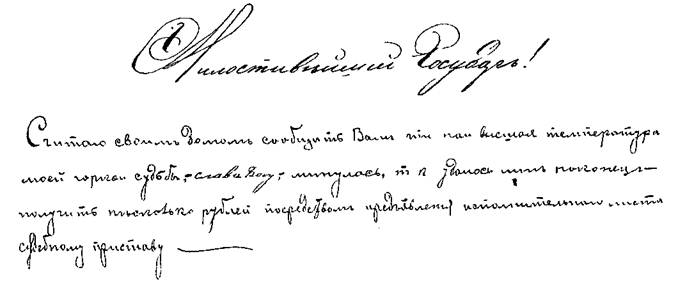 Милостивѣйшій Государь!
Считаю своимъ долгомъ сообщить Вамъ что наивысшая температура
моей горькой судьбы, слава Богу, минулась, т к удалось мнѣ наконецъ
получить нѣсколько рублей посредствомъ предъявленія исполнительнаго листа
судебному приставу